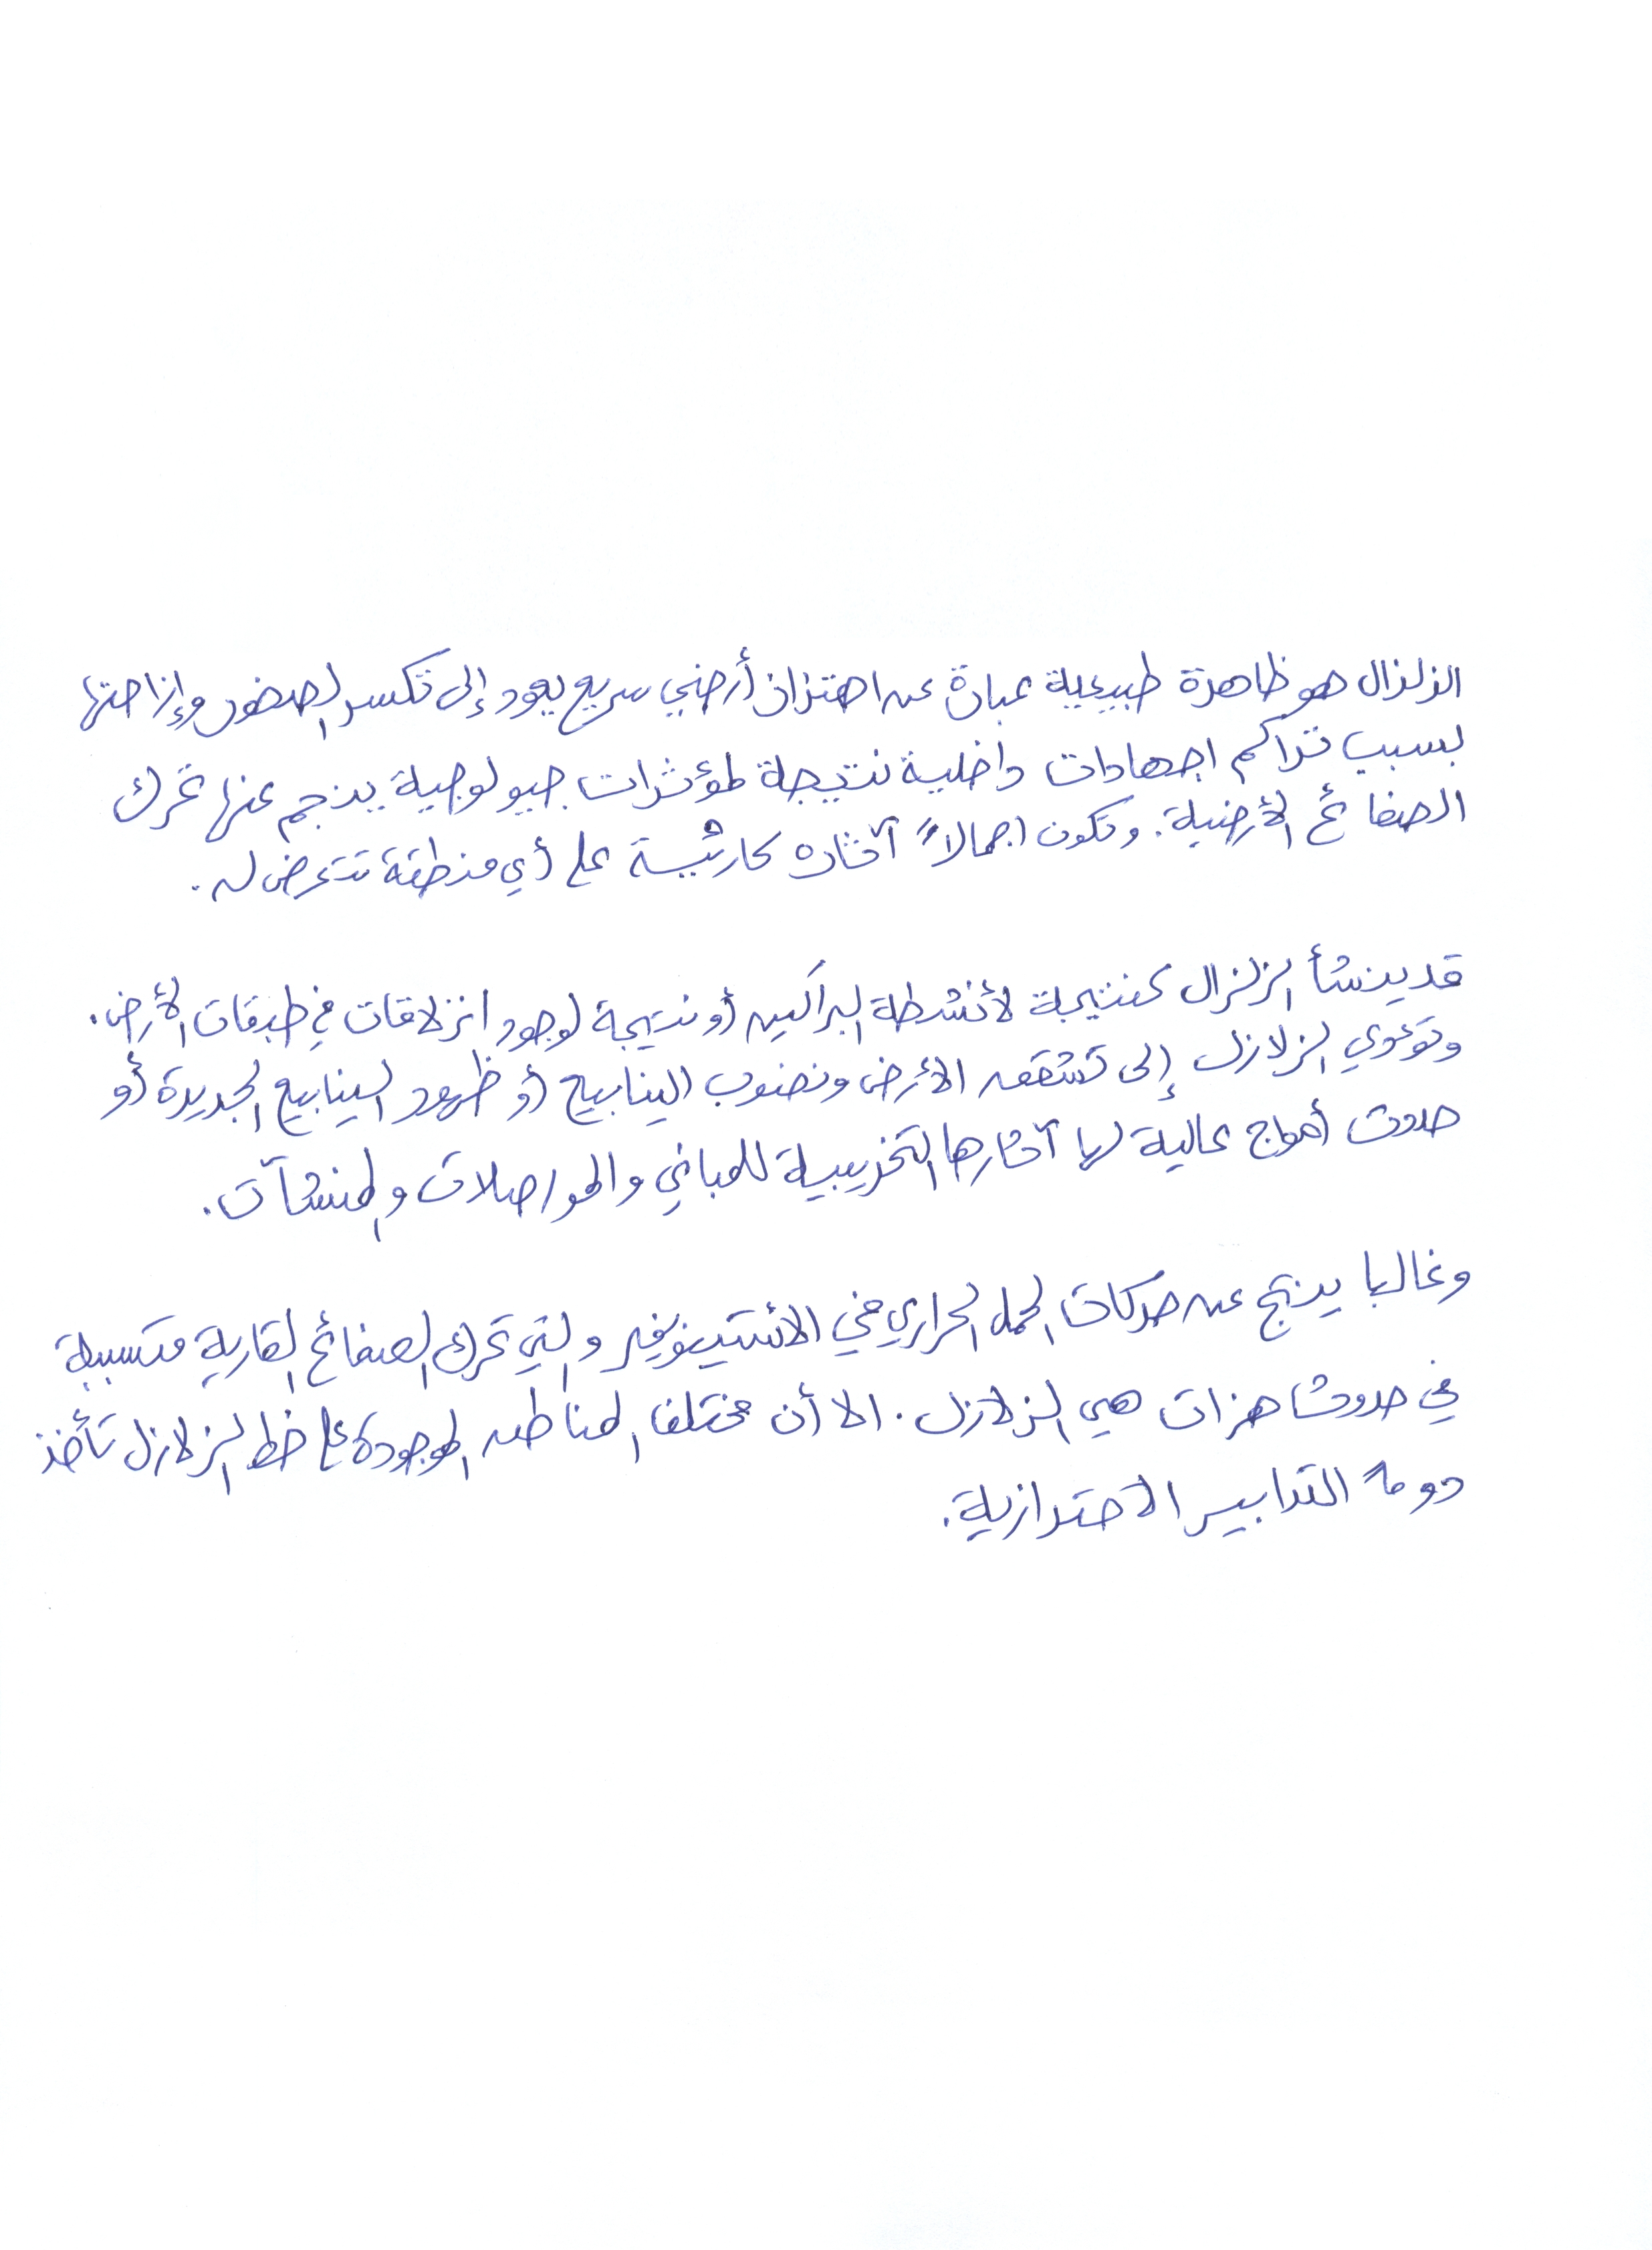 الزلزال هو ظاهرة طبيعية عبارة عن اهتزاز أرضي سريع يعود إلى تكسر الصخور وإزاحتها
بسبب تراكم اجهادات داخلية نتيجة لمؤثرات جيولوجية ينجم عنها تحرك
الصفائح الأرضية. وتكون اجمالاً آثاره كارثية على أي منطقة تتعرض له.
قد ينشأ الزلزال كنتيجة لأنشطة البراكين أو نتيجة لوجود انزلاقات في طبقات الأرض.
وتؤدي الزلازل إلى تشقق الأرض ونضوب الينابيع أو ظهور الينابيع الجديدة أو
حدوث أمواج عالية لها آثارها التخريبية للمباني والمواصلات والمنشآت.
وغالبا ينتج عن حركات الحمل الحراري في الأستينوسفير والتي تحرك الصفائح القارية متسببة
في حدوث هزات هي الزلازل. الا أن مختلف المناطق الموجودة على خط الزلازل تأخذ
دوماً التدابير الاحترازية.